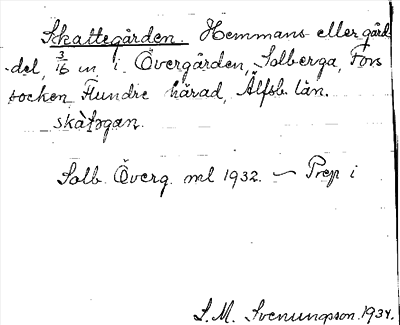 Skattegården. Hemmans eller gård
del, 3/16 m i Övergården, Solberga, Fors
socken Flundre härad, Älfsb. län.
skàtəgan.
Solb. Överg. ml 1932. — Prep i
S. M. Svenungson. 1934.